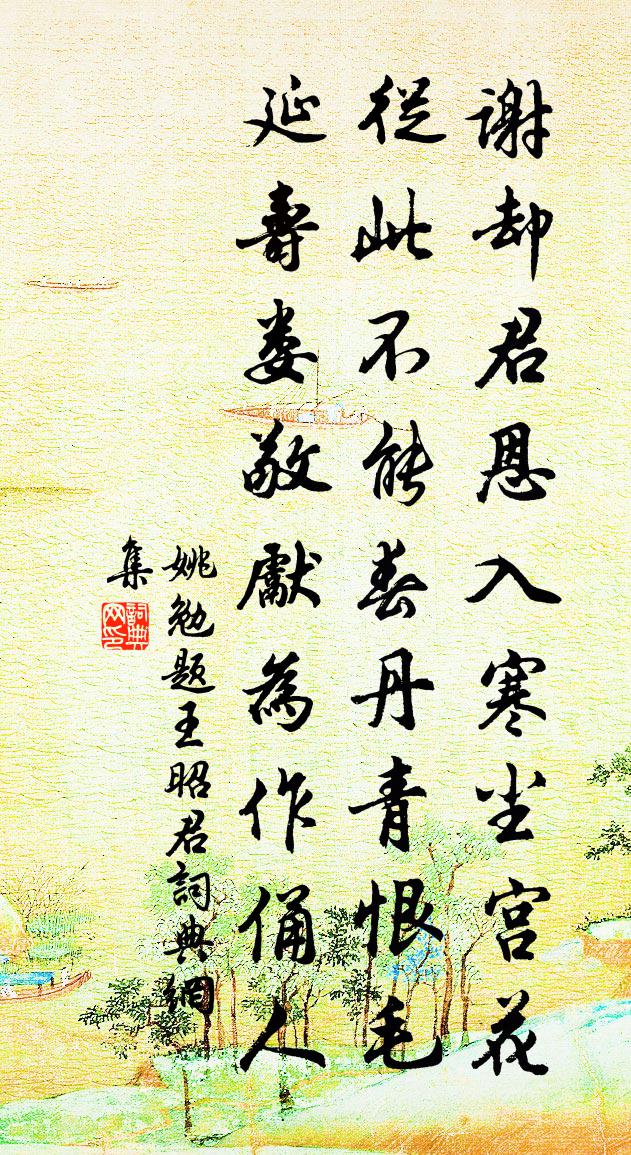 謝却君恩入寒尘宫花
從此不能春丹青恨毛
延壽娄敬獻為作俑人
姚勉题王昭君詞典網
集
詞典网印